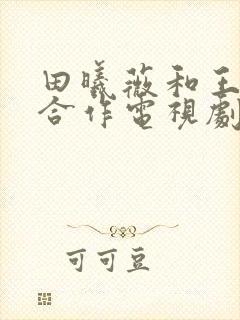 田曦薇和王
合作電視劇
可可豆